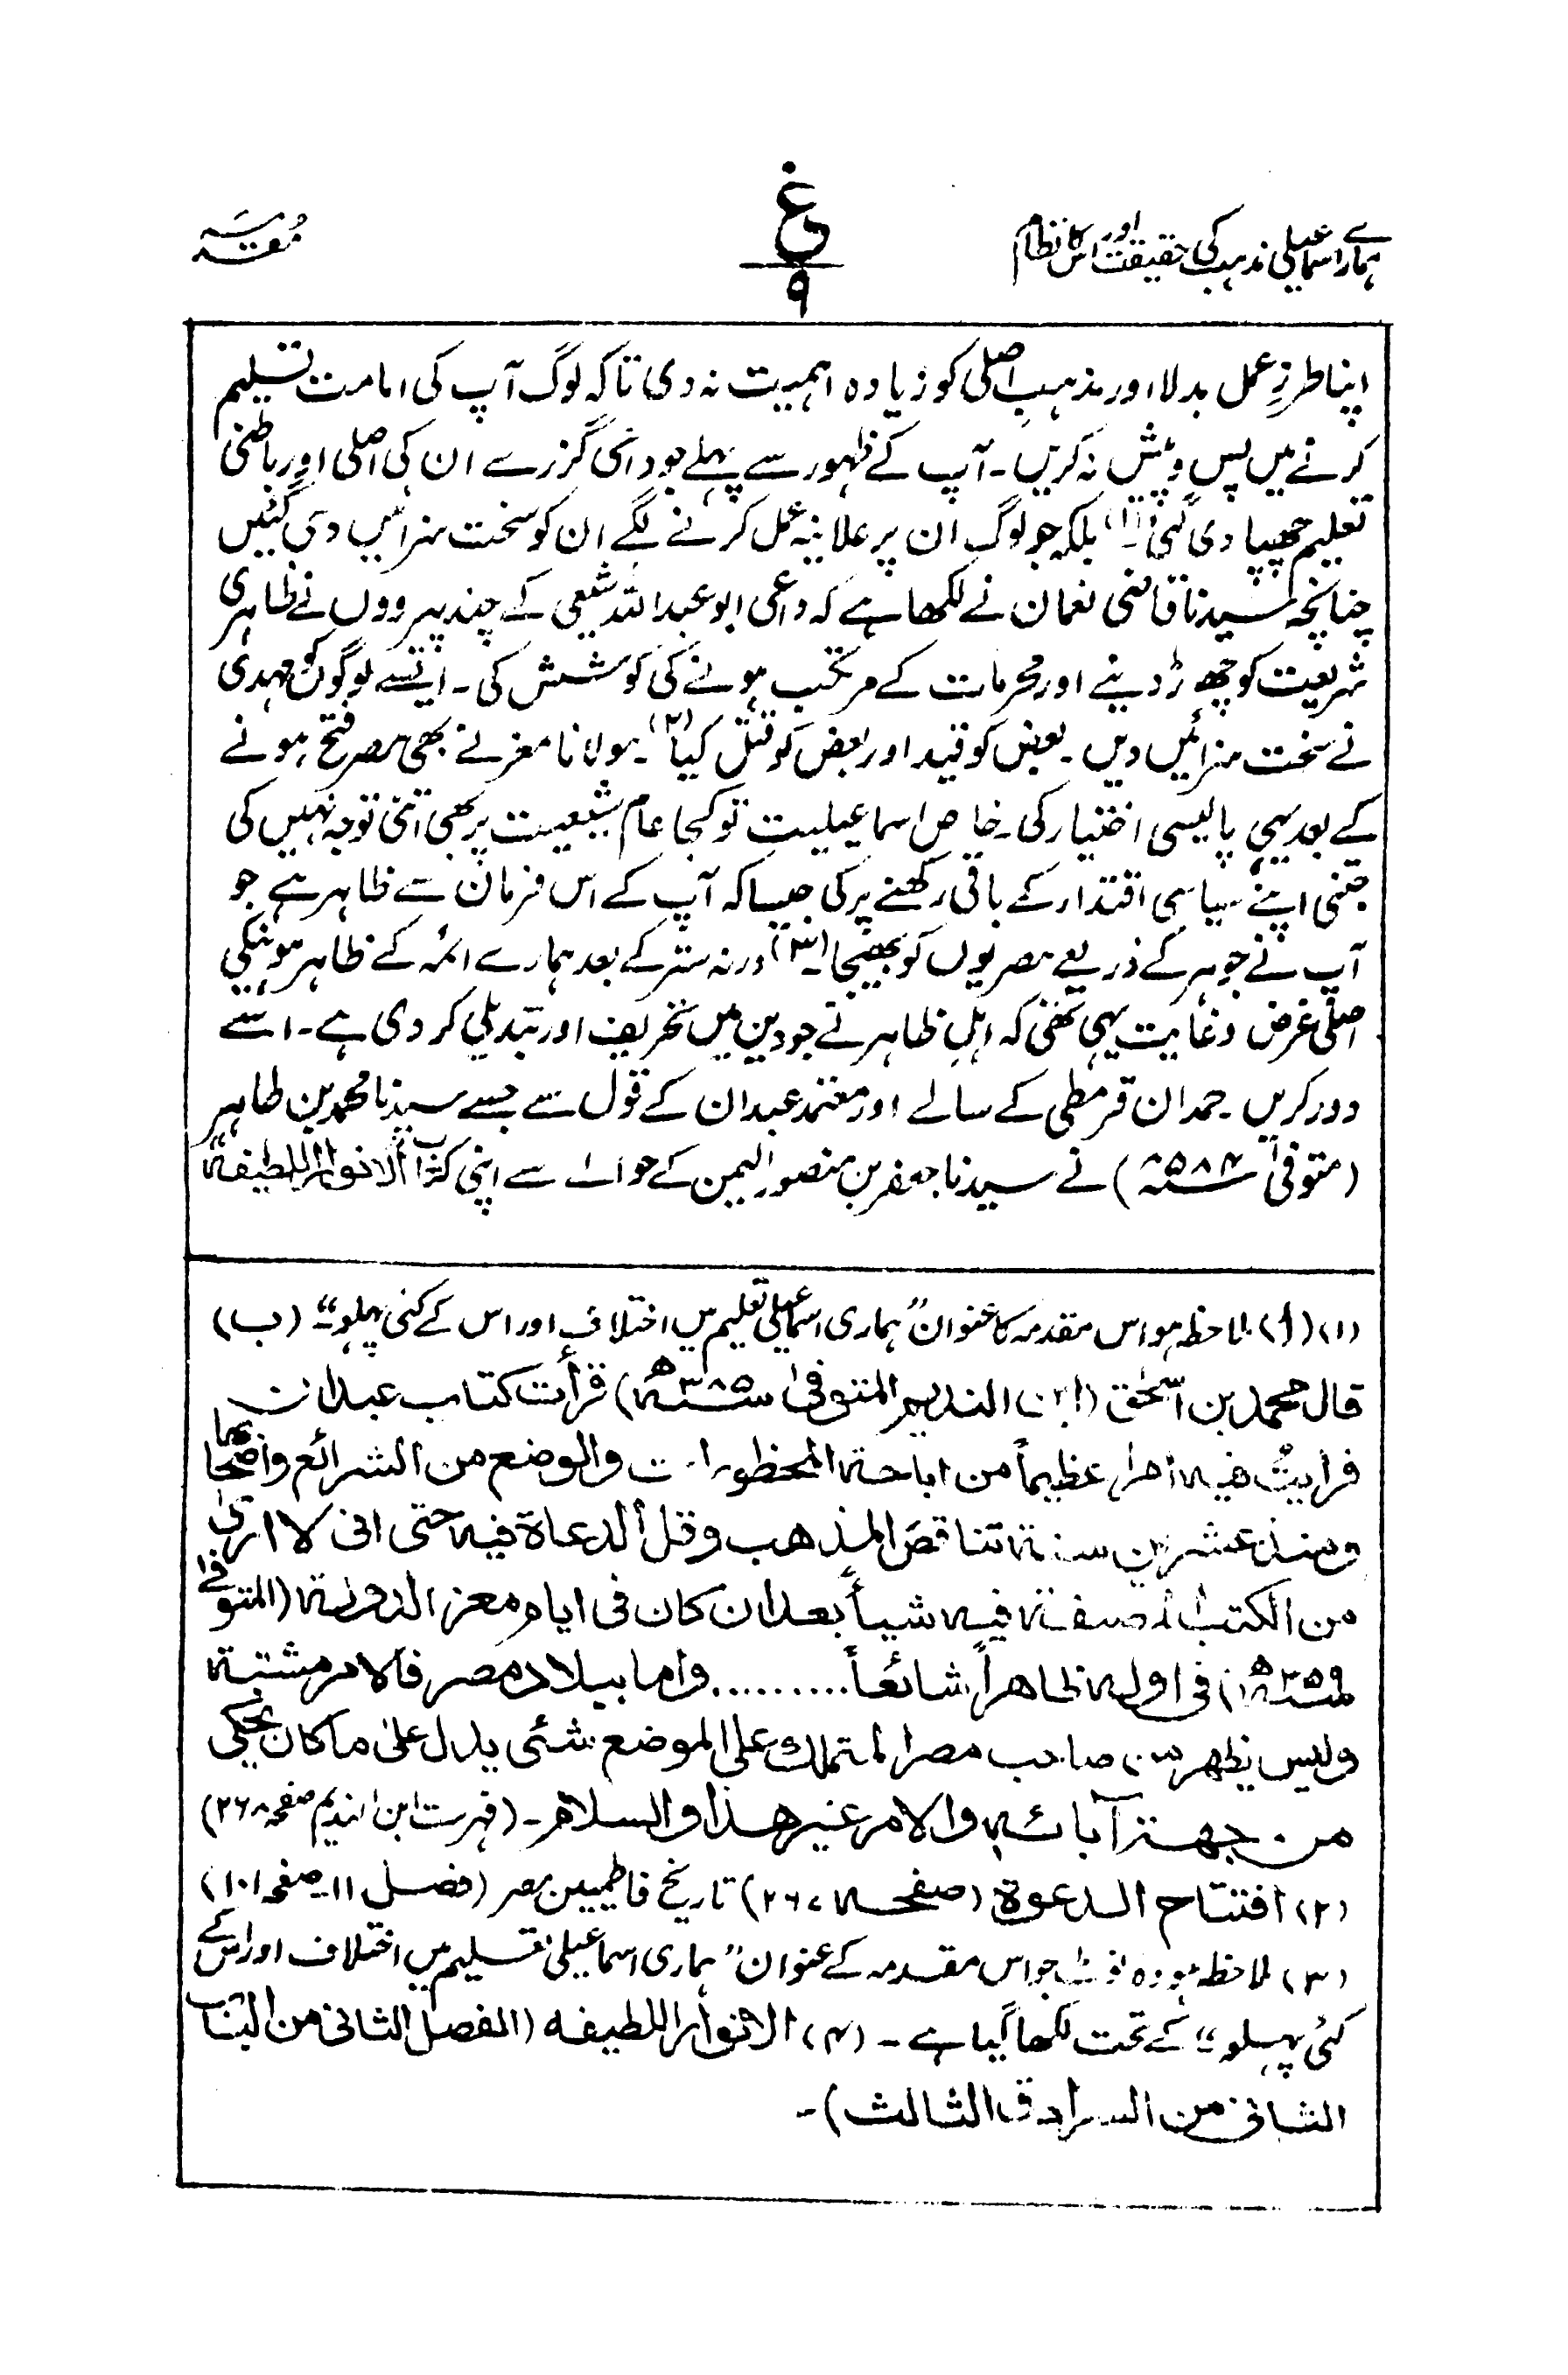 ہمارے اسماعیلی مذہب کی حقیقت اور اس کا نظام
غ
۹
مُقدمہ
اپنا طرزِ عمل بدلا اور مذہبِ اصلی کو زیادہ اہمیت نہ دی تاکہ لوگ آپ کی امامت تسلیم
کرنے میں پس و پیش نہ کریں۔ آپ کے ظہور سے پہلے جو داعی گزرے ان کی اصلی اور باطنی
تعلیم چھپا دی گئی۔(۱) بلکہ جو لوگ ان پر علانیہ عمل کرنے لگے ان کو سخت سزائیں دی گئیں
چنانچہ سیدنا قاضی نعمان نے لکھا ہے کہ داعی ابو عبداللہ شیعی کے چند پیرووں نے ظاہری
شریعت کو چھوڑ دینے اور محرمات کے مرتکب ہونے کی کوشش کی۔ ایسے لوگوں کو مہدی
نے سخت سزائیں دیں۔ بعض کو قید اور بعض کو قتل کیا(۲)۔ مولانا معز نے بھی مصر فتح ہونے
کے بعد یہی پالیسی اختیار کی۔ خاص اسماعیلیت تو کجا عام شیعیت پر بھی اتنی توجہ نہیں کی
جتنی اپنے سیاسی اقتدار کے باقی رکھنے پر کی جیسا کہ آپ کے اس فرمان سے ظاہر ہے جو
آپ نے جوہر کے ذریعے مصریوں کو بھیجا۔(۳) ورنہ ستر کے بعد ہمارے ائمہ کے ظاہر ہونیکی
اصلی غرض و غایت یہی تھی کہ اہلِ ظاہر نے جو دین میں تحریف اور تبدیلی کر دی ہے۔ اسے
دور کریں۔ حمدان قرمطی کے سالے اور معتمد عبدان کے قول سے جسے سیدنا محمد بن طاہر
(متوفیٰ ۵۸۴ھ) نے سیدنا جعفر بن منصور الیمن کے حوالے سے اپنی کتاب "الانوار اللطیفہ"
(۱) (ا) ملاحظہ ہو اس مقدمہ کا عنوان "ہماری اسماعیلی تعلیم میں اختلاف اور اس کے کئی پہلو"۔ (ب)
قال محمد بن اسحٰق (ابن الندیم المتوفیٰ ۳۸۵ھ) قرأت کتاب عبدان
فرایتُ فیہ امراً عظیماً من اباحۃ المحظورات والوضع من الشرائع واصحابھا
ومنذ عشرین سنۃ تناقصَ المذھب وقل الدعاۃ فیہ حتی انی لا اریٰ
من الکتب المصنفۃ فیہ شیأً بعد ان کان فی ایام معز الدولۃ (المتوفیٰ
۳۵۹ھ) فی اولہ ظاھراً شائعاً.......... واما ببلاد مصر فالامر مشتبہ
ولیس یظھر من صاحب مصر المتملک علی الموضع شئی یدل علیٰ ما کان یحکی
من جھۃ آبائہ والامر غیر ھذا والسلام۔ (فہرست ابن الندیم صفحہ ۲۶۸)
(۲) افتتاح الدعوۃ (صفحہ ۲۶۷) تاریخ فاطمیین مصر (فصل ۱۱۔ صفحہ ۱۰۱)
(۳) ملاحظہ ہو وہ نوٹ جو اس مقدمہ کے عنوان "ہماری اسماعیلی تعلیم میں اختلاف اور اس کے
کئی پہلو" کے تحت لکھا گیا ہے۔ (۴) الانوار اللطیفہ (الفصل الثانی من الباب
الثانی من السرادق الثالث)۔